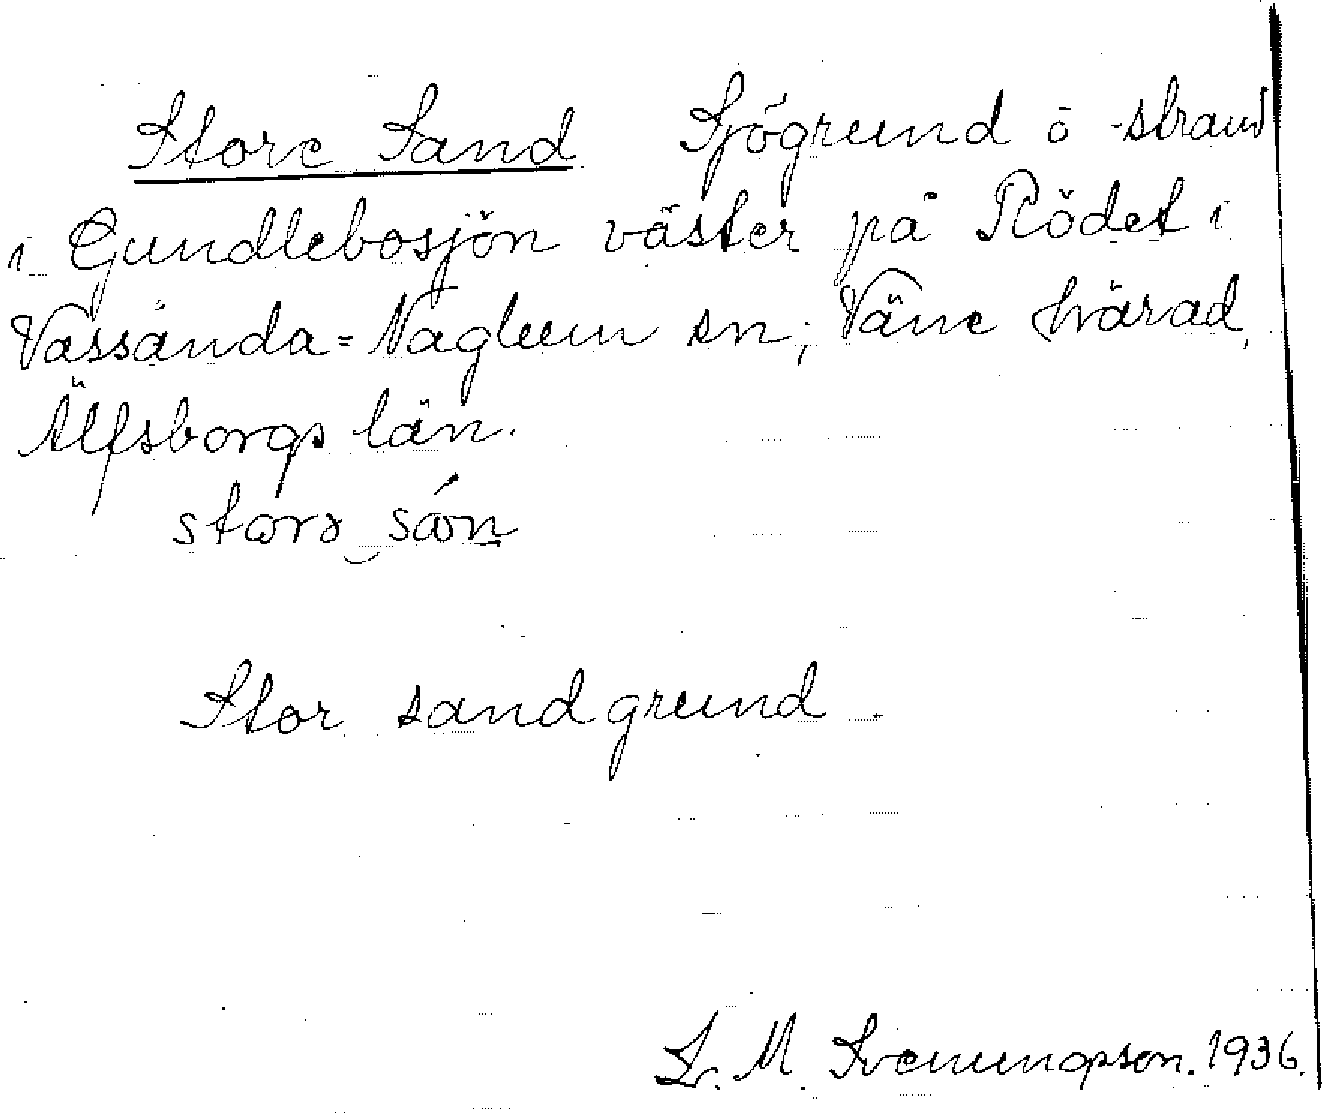 Store Sand Sjögrund ö -strand
i Gundlebosjön väster på Rödet i
Vassända=Naglum sn; Väne härad,
Älfsborgs län.
storə sán
Stor sandgrund.
L. M. Svenungsson. 1936.